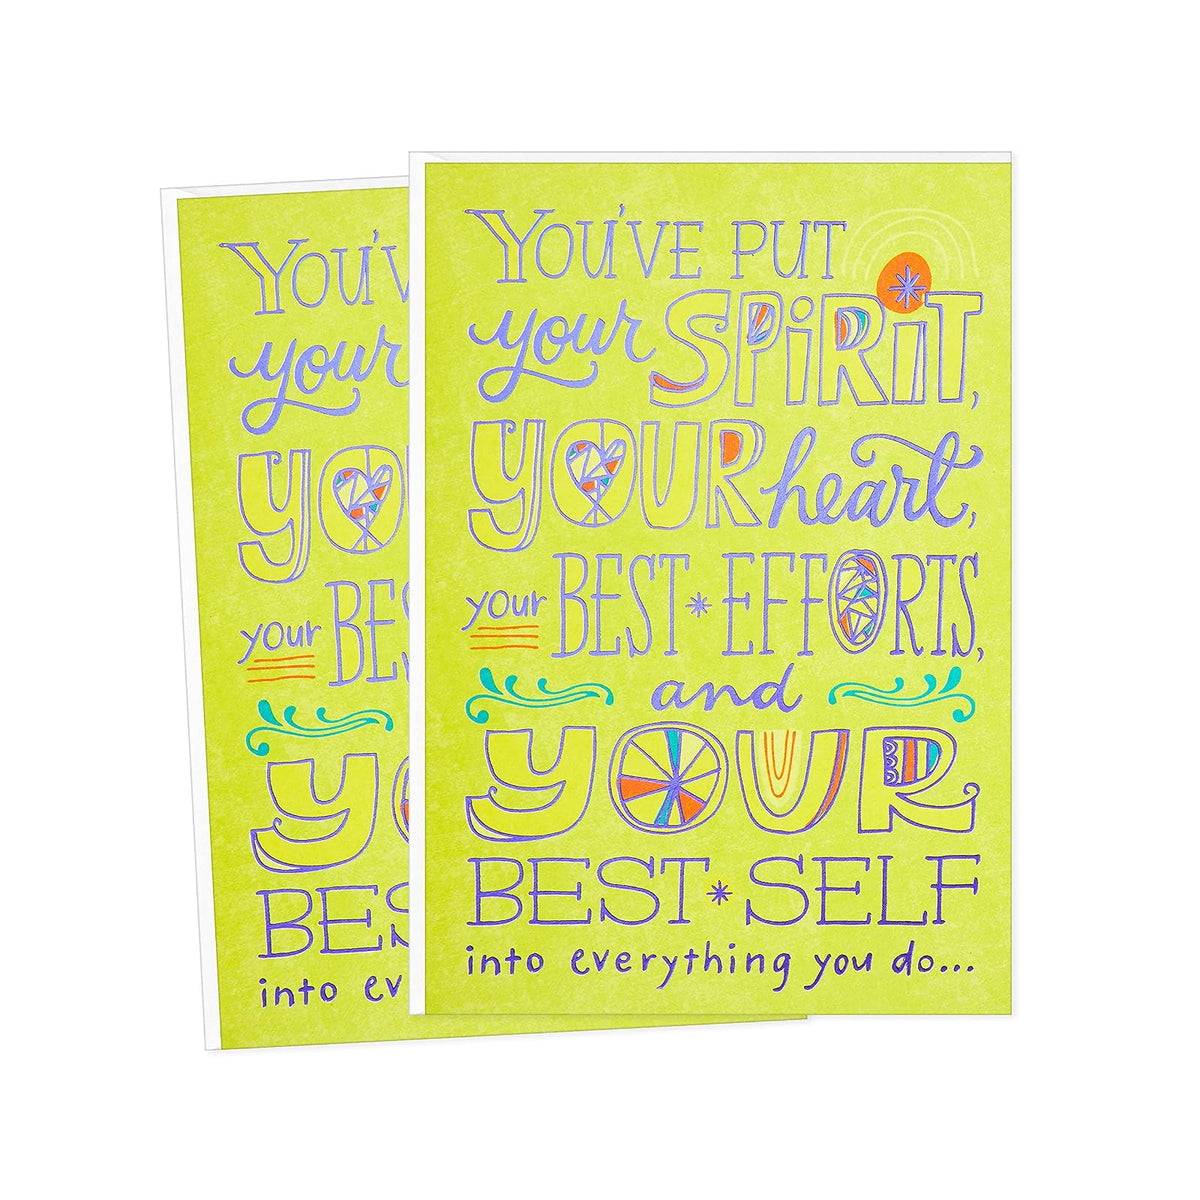 YOU'VE PUT
your SPiRiT,
YOUR heart,
your BEST EFFORTS,
and
YOUR
BEST SELF
into everything you do...
YOU'V
your
YO
your BES
YO
BES
into ev